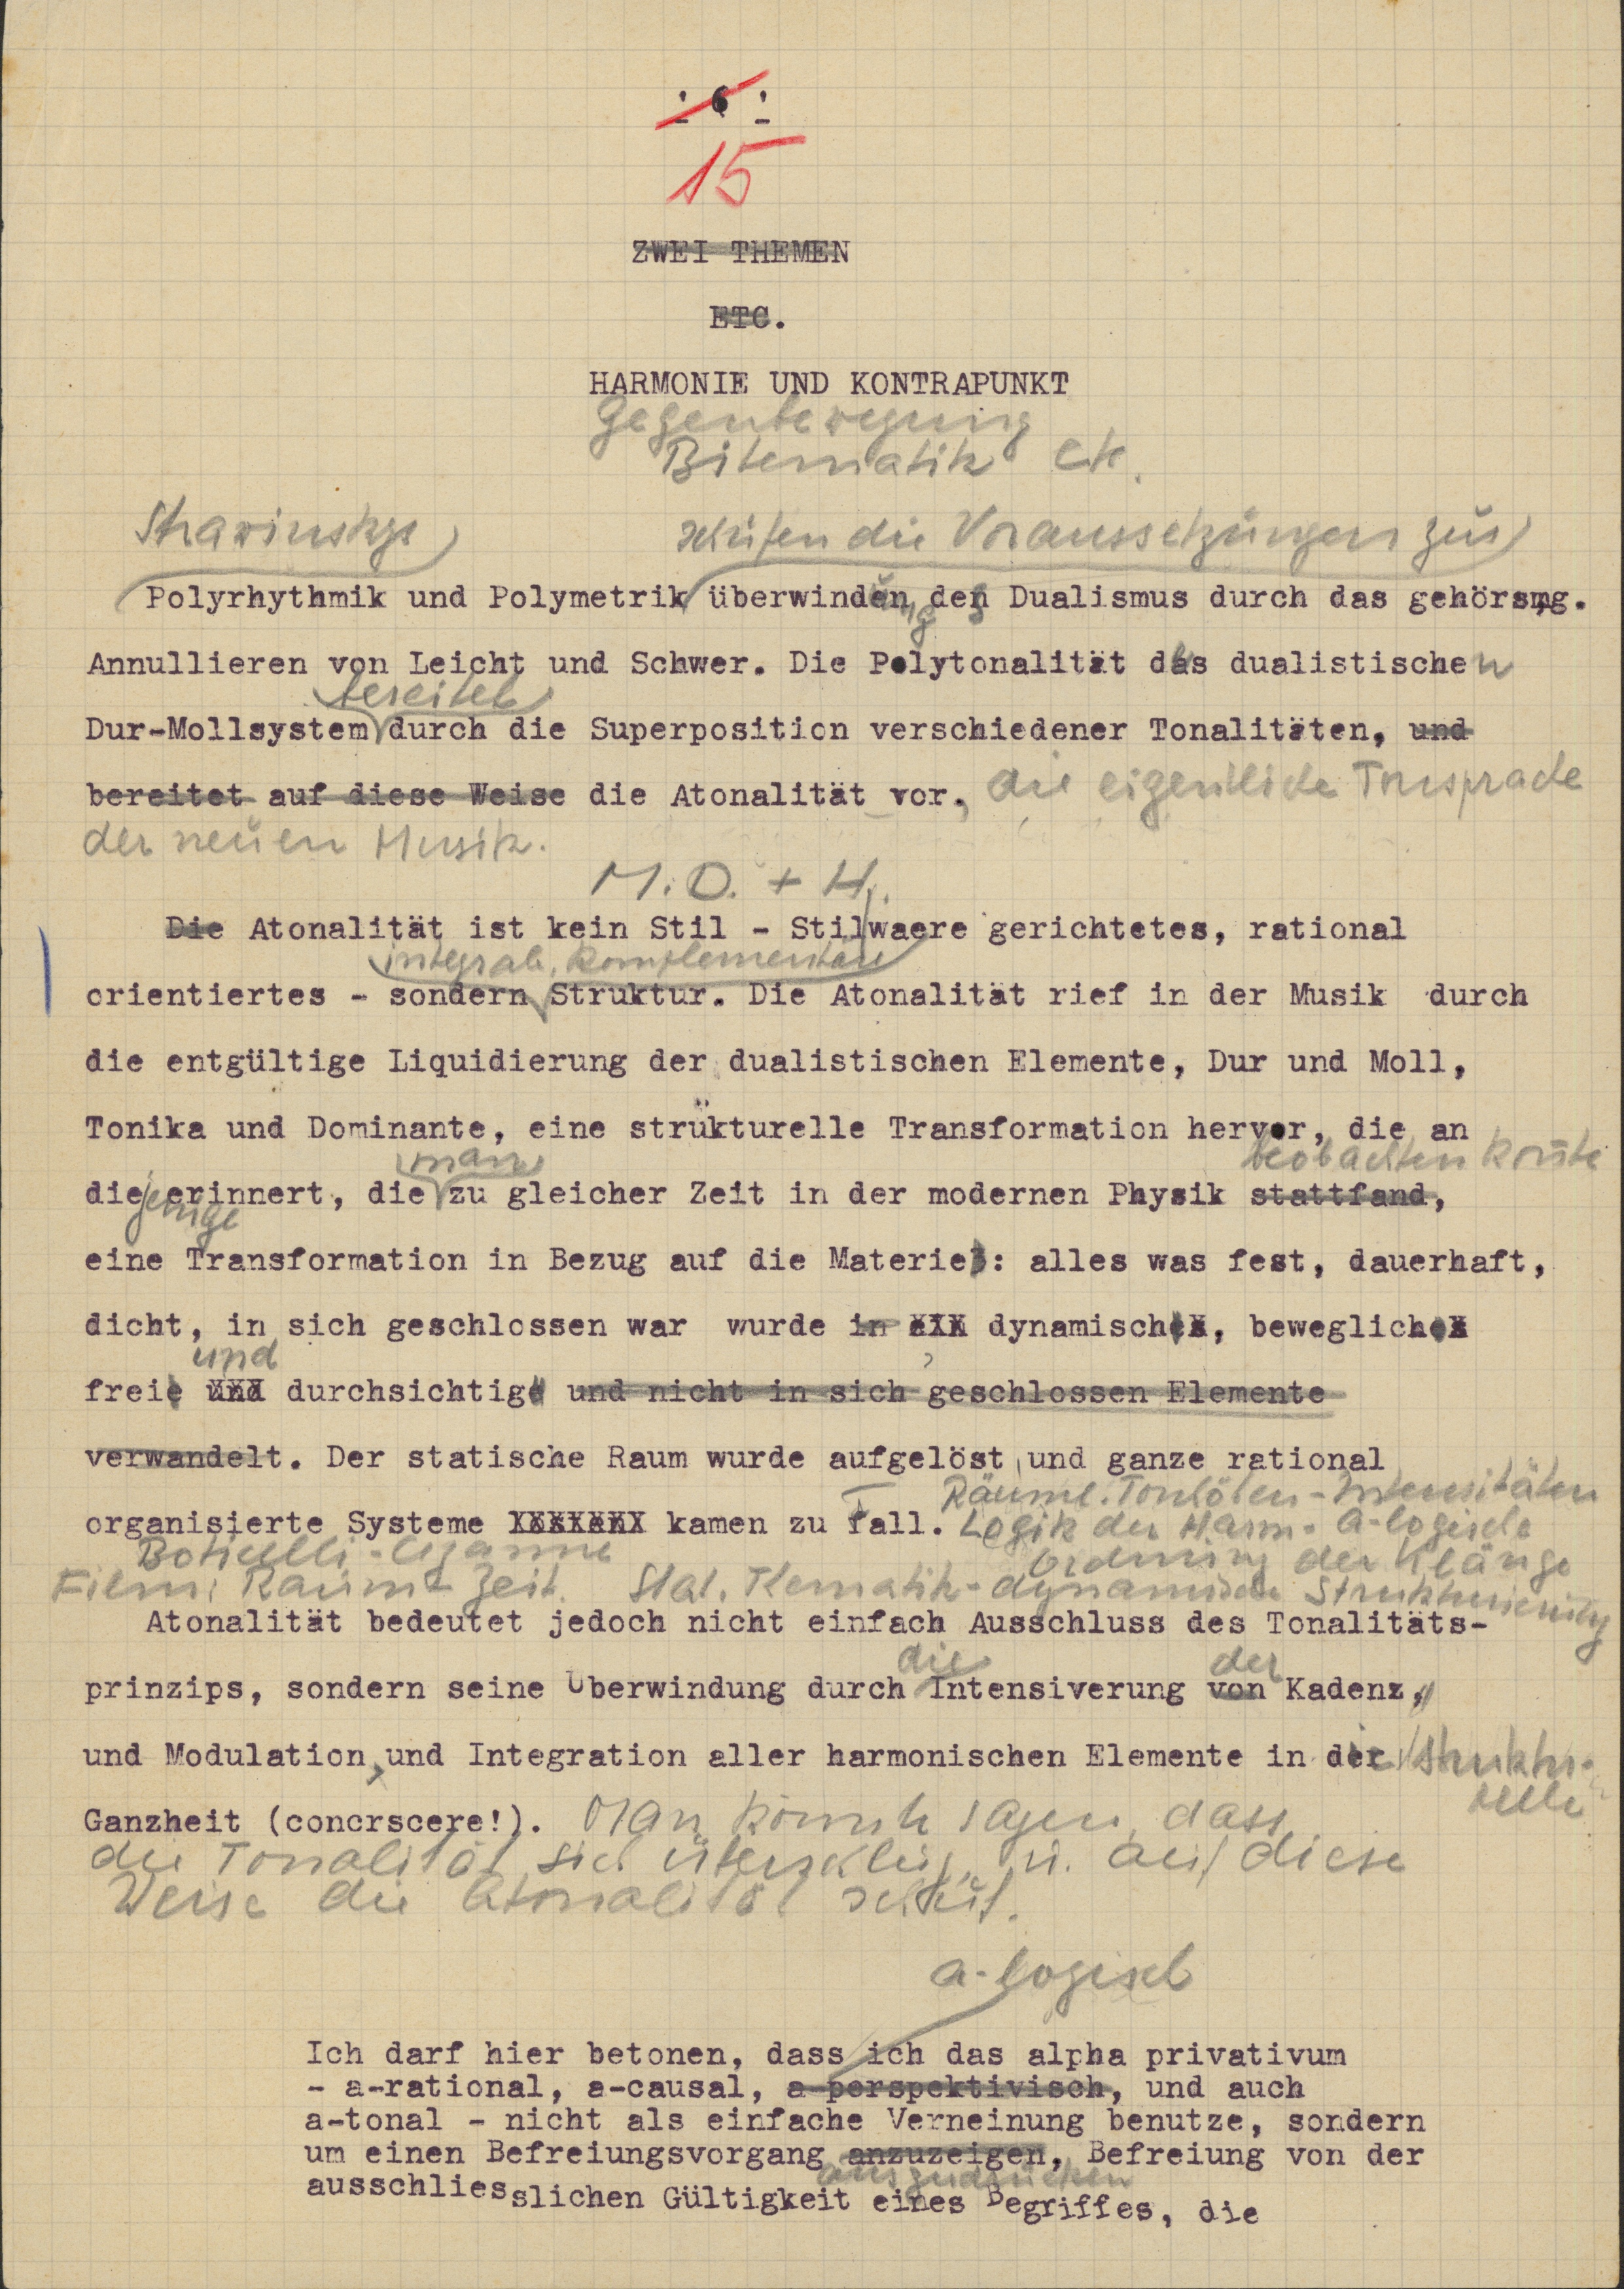 : 6 :
15
ZWEI THEMEN
ETC.
HARMONIE UND KONTRAPUNKT
Gegenbewegung
Bitematik etc.
Strawinskys schufen die Voraussetzungen zur
Polyrhythmik und Polymetrik überwinden den Dualismus durch das gehörsmg.
Annullieren von Leicht und Schwer. Die Polytonalität das dualistischen
bereitet
Dur-Mollsystem durch die Superposition verschiedener Tonalitäten, und
bereitet auf diese Weise die Atonalität vor, die eigentliche Tonsprache
der neuen Musik.
M.D. + H.
Die Atonalität ist kein Stil - Stil waere gerichtetes, rational
integrale, komplementäre
orientiertes - sondern Struktur. Die Atonalität rief in der Musik durch
die entgültige Liquidierung der dualistischen Elemente, Dur und Moll,
Tonika und Dominante, eine strükturelle Transformation hervor, die an
man beobachten konnte
die erinnert, die zu gleicher Zeit in der modernen Physik stattfand,
jenige
eine Transformation in Bezug auf die Materie: alles was fest, dauerhaft,
dicht, in sich geschlossen war wurde in dynamisch, beweglich
und
frei und durchsichtig und nicht in sich geschlossen Elemente
verwandelt. Der statische Raum wurde aufgelöst und ganze rational
Räuml. Tonhöhen - Intensitäten
organisierte Systeme XXXXXXX kamen zu Fall. Logik der Harm. - a-logische
Boticelli - Cézanne Ordnung der Klänge
Film: Raum - Zeit. Stat. Thematik - dynamische Strukturierung
Atonalität bedeutet jedoch nicht einfach Ausschluss des Tonalitäts-
die der
prinzips, sondern seine Überwindung durch Intensiverung von Kadenz,
und Modulation, und Integration aller harmonischen Elemente in der struktu-
relle
Ganzheit (concrscere!). Man könnte sagen, dass
die Tonalität sich überschlug u. auf diese
Weise die Atonalität schuf.
a-logisch
Ich darf hier betonen, dass ich das alpha privativum
- a-rational, a-causal, a-perspektivisch, und auch
a-tonal - nicht als einfache Verneinung benutze, sondern
um einen Befreiungsvorgang anzuzeigen, Befreiung von der
auszudrücken
ausschliesslichen Gültigkeit eines Begriffes, die